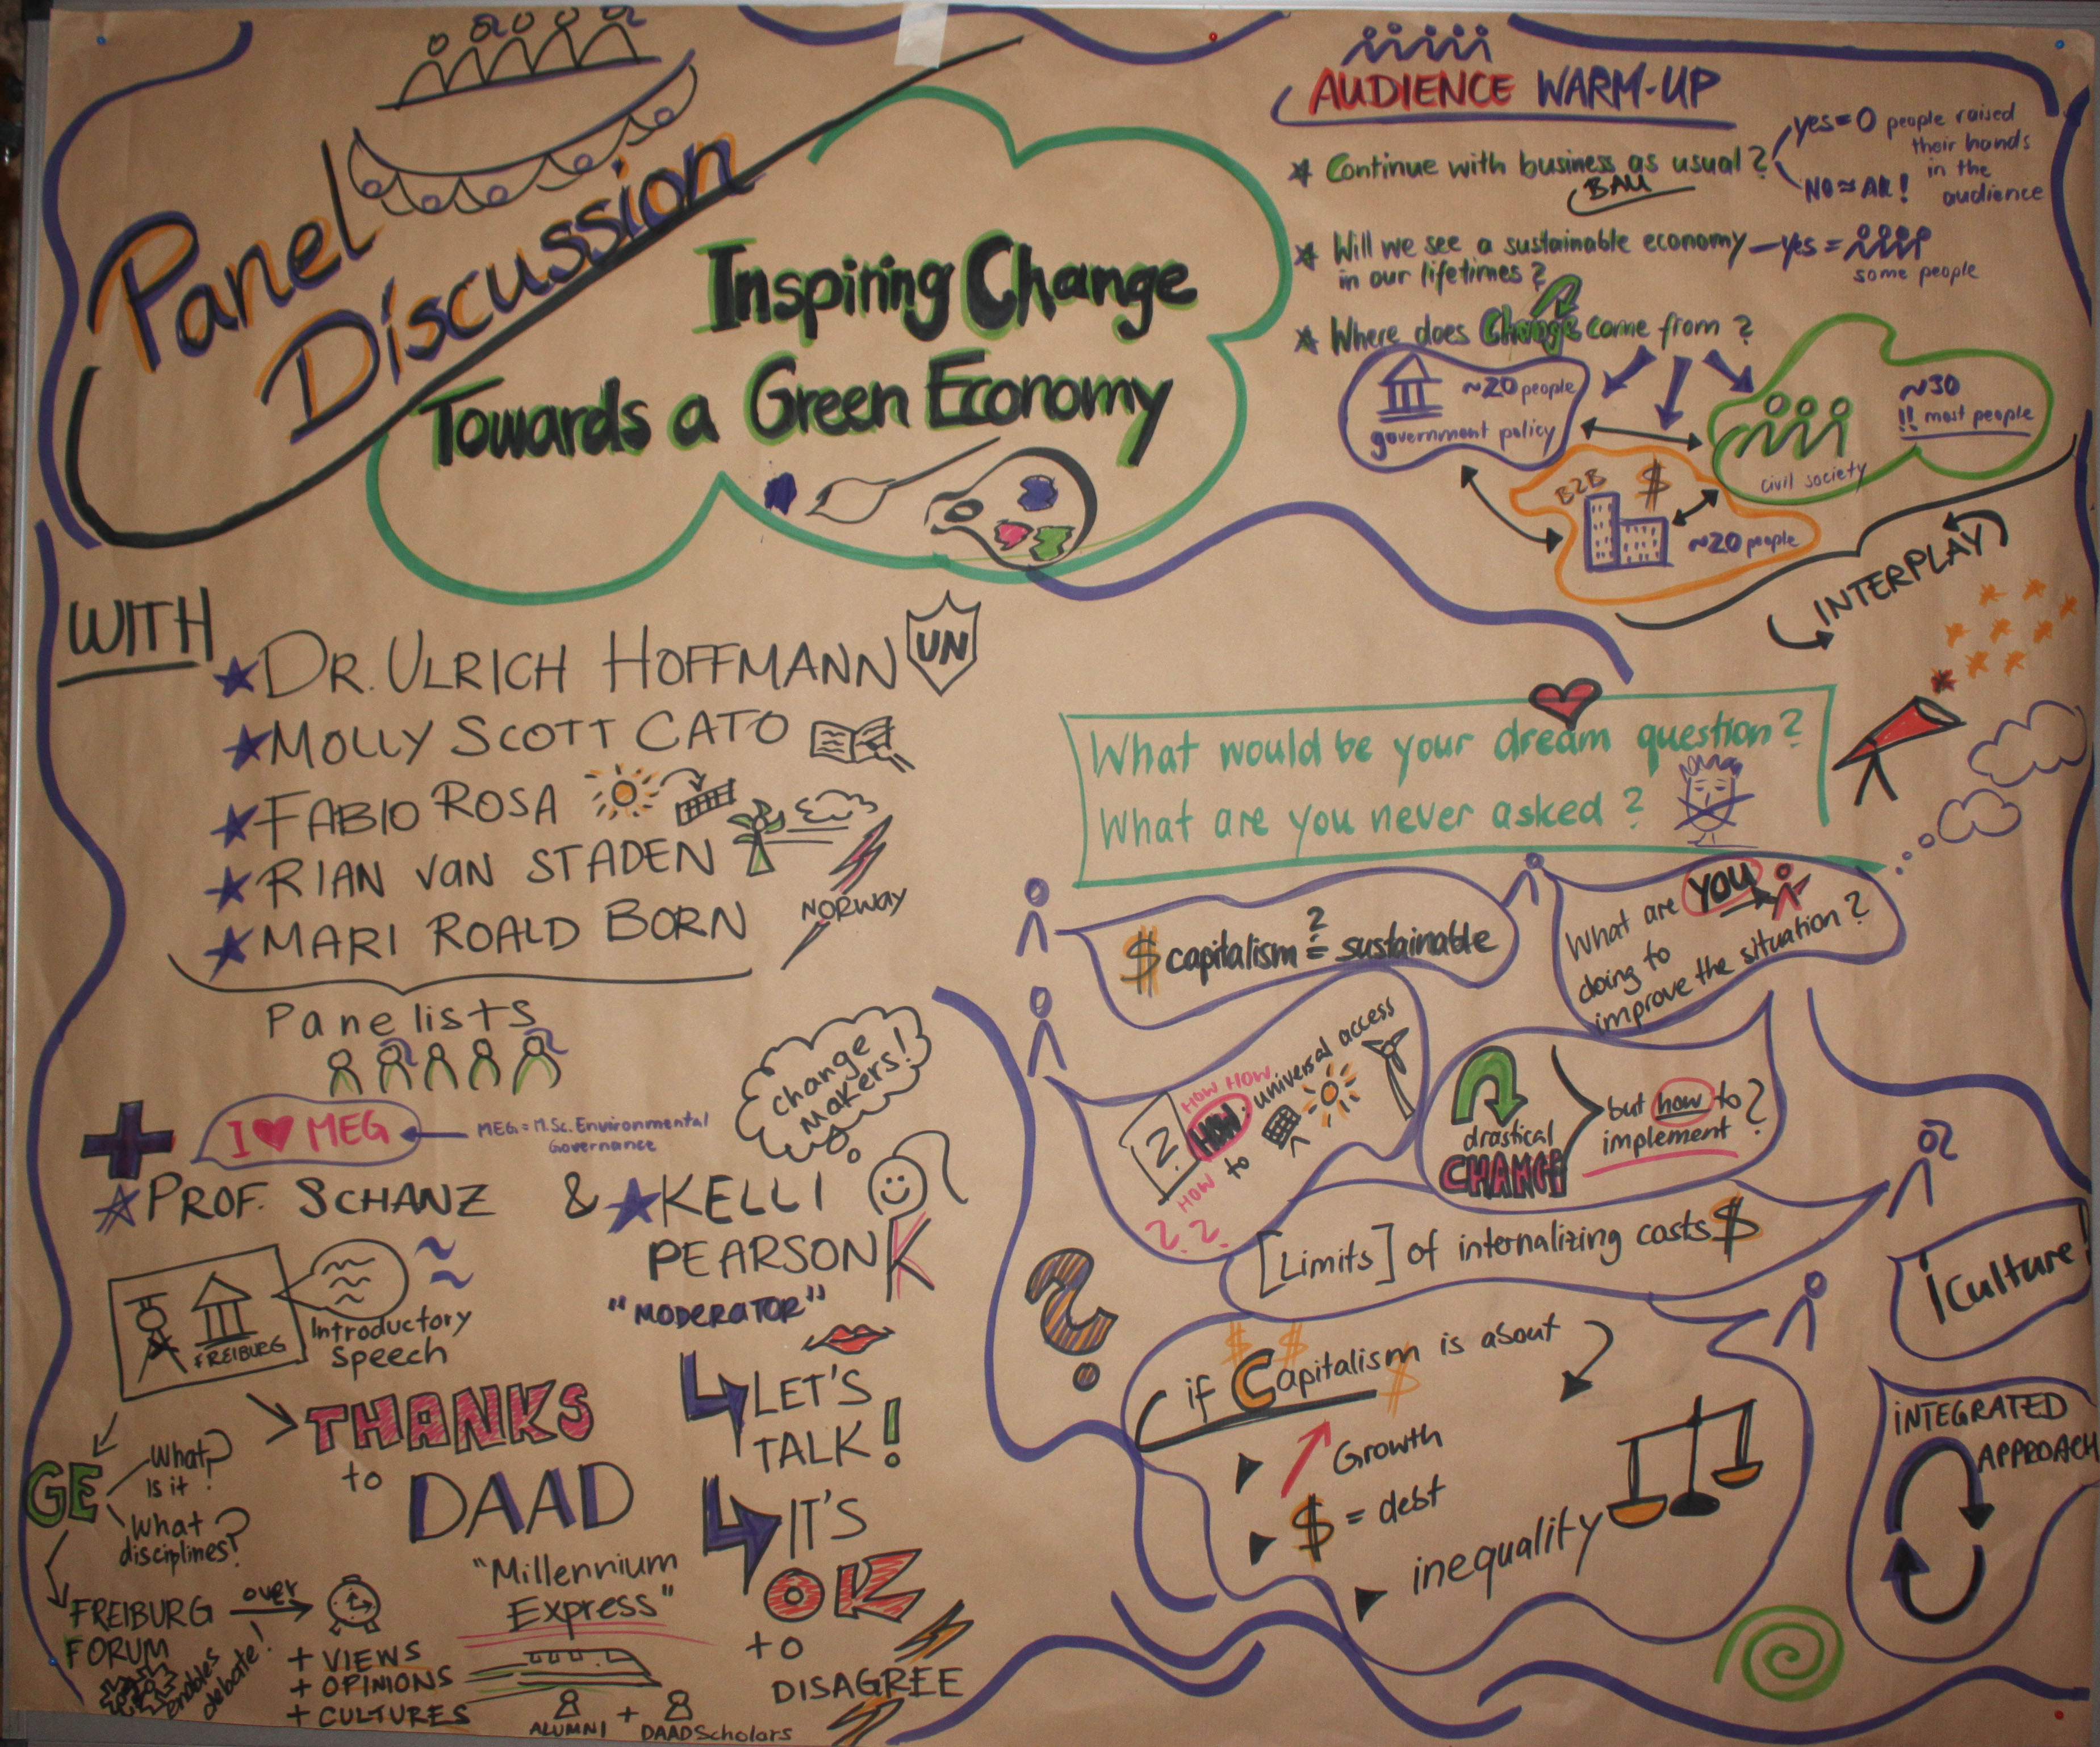 Panel
Discussion
Inspiring Change
Towards a Green Economy
WITH
DR. ULRICH HOFFMANN
UN
MOLLY SCOTT CATO
FABIO ROSA
RIAN van STADEN
MARI ROALD BORN
NORWAY
Panelists
change
makers!
I ♥ MEG
MEG = M.Sc. Environmental
Governance
PROF. SCHANZ & KELLI
PEARSON K
"MODERATOR"
FREIBURG
Introductory
speech
LET'S
TALK!
IT'S
OK
to
DISAGREE
THANKS
to
DAAD
"Millennium
Express"
ALUMNI + DAAD Scholars
GE
What?
Is it?
What
disciplines?
FREIBURG
FORUM
enables
debate!
over
+ VIEWS
+ OPINIONS
+ CULTURES
AUDIENCE WARM-UP
Continue with business as usual?
BAU
yes = 0 people raised
their hands
in the
audience
NO ≈ All!
Will we see a sustainable economy – yes =
in our lifetimes?
some people
Where does Change come from?
~20 people
government policy
~30
!! most people
civil society
B2B $
~20 people
INTERPLAY
What would be your dream question?
What are you never asked?
$ capitalism ?= sustainable
What are YOU
doing to
improve the situation?
?
HOW HOW
HOW: universal access
HOW to
? ?
drastical
CHANGE
but how to
implement?
[Limits] of internalizing costs $
?
if Capitalism is about
$ $ $
Growth
$ = debt
inequality
¡Culture!
INTEGRATED
APPROACH